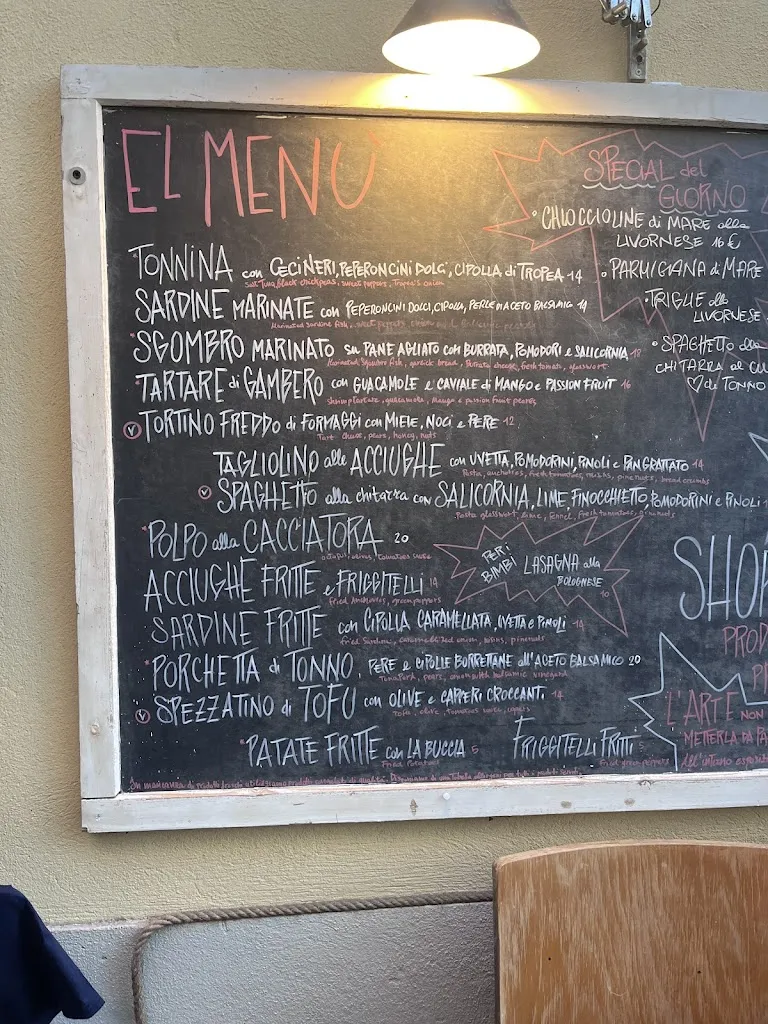 EL MENU'
TONNINA con CECI NERI, PEPERONCINI DOLCI, CIPOLLA di TROPEA 14
Salt Tuna, black chickpeas, sweet peppers, Tropea's onion
SARDINE MARINATE con PEPERONCINI DOLCI, CIPOLLA, PERLE DI ACETO BALSAMICO 14
Marinated Sardine fish, sweet peppers
SGOMBRO MARINATO su PANE AGLIATO con BURRATA, POMODORI e SALICORNIA 18
fish, garlick bread, cheese, fresh tomato, glasswort
TARTARE di GAMBERO con GUACAMOLE e CAVIALE di MANGO e PASSION FRUIT 16
shrimp tartare, guacamole, mango e passion fruit pearls
V TORTINO FREDDO di FORMAGGI con MIELE, NOCI e PERE 12
Tart cheese, pears, honey, nuts
TAGLIOLINO alle ACCIUGHE con UVETTA, POMODORINI, PINOLI e PAN GRATTATO 14
Pasta, anchovies, fresh tomatoes, pinenuts, bread crumbs
V SPAGHETTO alla chitarra con SALICORNIA, LIME, FINOCCHIETTO, POMODORINI e PINOLI
Pasta glasswort, lime, fennel, fresh tomatoes, pinenuts
POLPO alla CACCIATORA 20
octopus, olives, tomatoes sauce
ACCIUGHE FRITTE e FRIGGITELLI 14
Fried Anchovies, green peppers
SARDINE FRITTE con CIPOLLA CARAMELLATA, UVETTA e PINOLI 14
Fried Sardine, caramellized onion, raisins, pinenuts
PORCHETTA di TONNO, PERE e CIPOLLE BORRETTANE all'ACETO BALSAMICO 20
Tuna Pork, pears, onion with balsamic vinegard
V SPEZZATINO di TOFU con OLIVE e CAPPERI CROCCANTI 14
Tofu, olive, tomatoes sauce, capers
PATATE FRITTE con LA BUCCIA 5
Fried Potatoes
FRIGGITELLI FRITTI 5
Fried green peppers
PER I
BIMBI
LASAGNA alla
BOLOGNESE
10
SPECIAL del
GIORNO
CHIOCCIOLINE di MARE alla
LIVORNESE 16 €
PARMIGIANA di MARE
TRIGLIE alla
LIVORNESE
SPAGHETTO alla
CHITARRA al CU
♡ di TONNO
SHO
PROD
L'ARTE NON
METTERLA DA PA